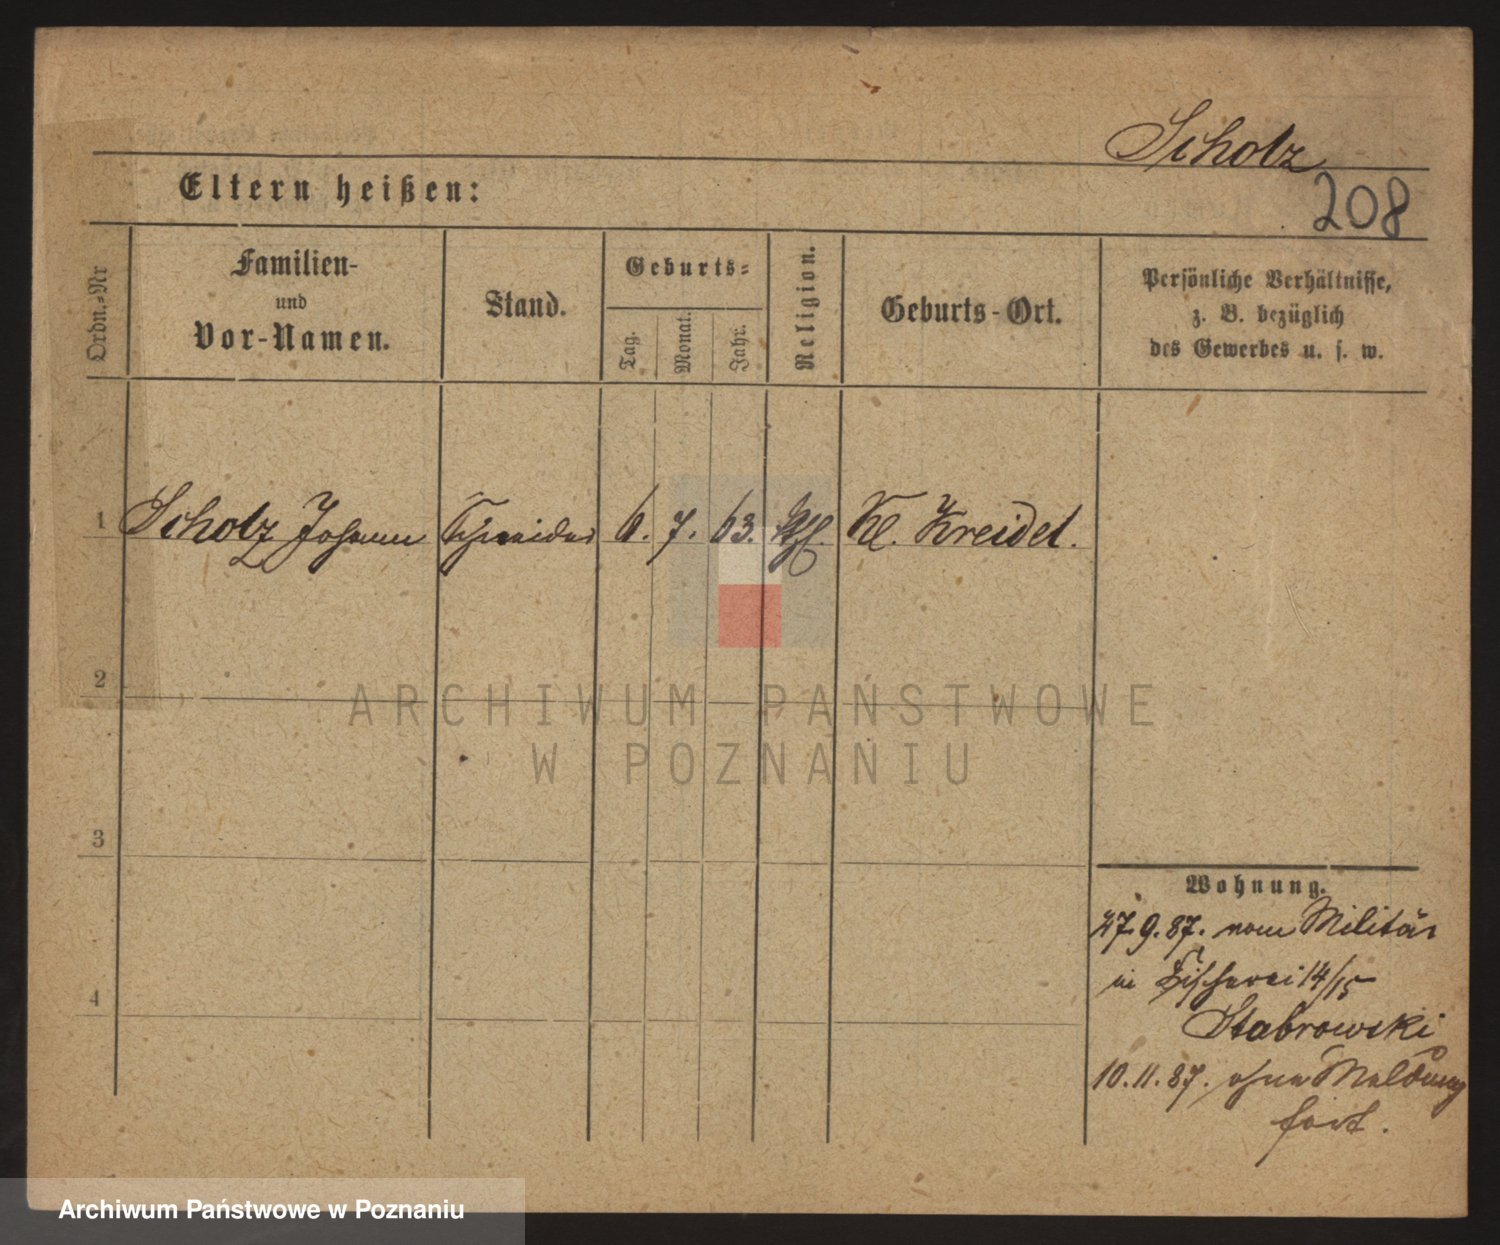 Scholz
208
Eltern heißen:
Ordn.-Nr
Familien-
und
Vor-Namen.
Stand.
Geburts-
Tag.
Monat.
Jahr.
Religion.
Geburts-Ort.
Persönliche Verhältnisse,
z. B. bezüglich
des Gewerbes u. s. w.
1 Scholz Johann Schneider 6. 7. 63. kth. Kl. Kreidel.
2
3
4
Wohnung.
27.9.87. vom Militär
in Fischerei 14/15
Stabrowski
10.11.87. ohne Meldung
fort.
ARCHIWUM PAŃSTWOWE
W POZNANIU
Archiwum Państwowe w Poznaniu